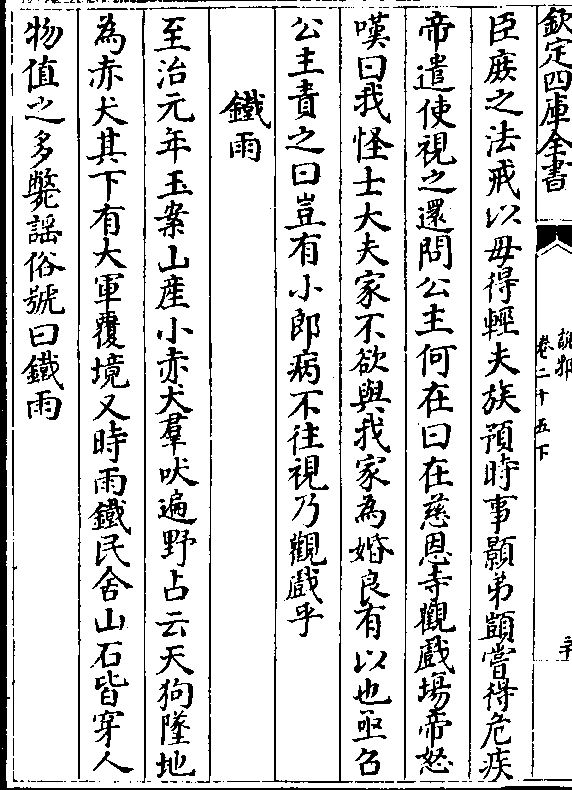 欽定四庫全書
說郛
卷二十五下
臣庻之法戒以毋得輕夫族預時事顥弟顗嘗得危疾
帝遣使視之還問公主何在曰在慈恩寺觀戲場帝怒
嘆曰我怪士大夫家不欲與我家為婚良有以也亟召
公主責之曰豈有小郎病不往視乃觀戲乎
鐵雨
至治元年玉案山産小赤犬羣吠遍野占云天狗墜地
為赤犬其下有大軍覆境又時雨鐵民舍山石皆穿人
物值之多斃謡俗號曰鐵雨